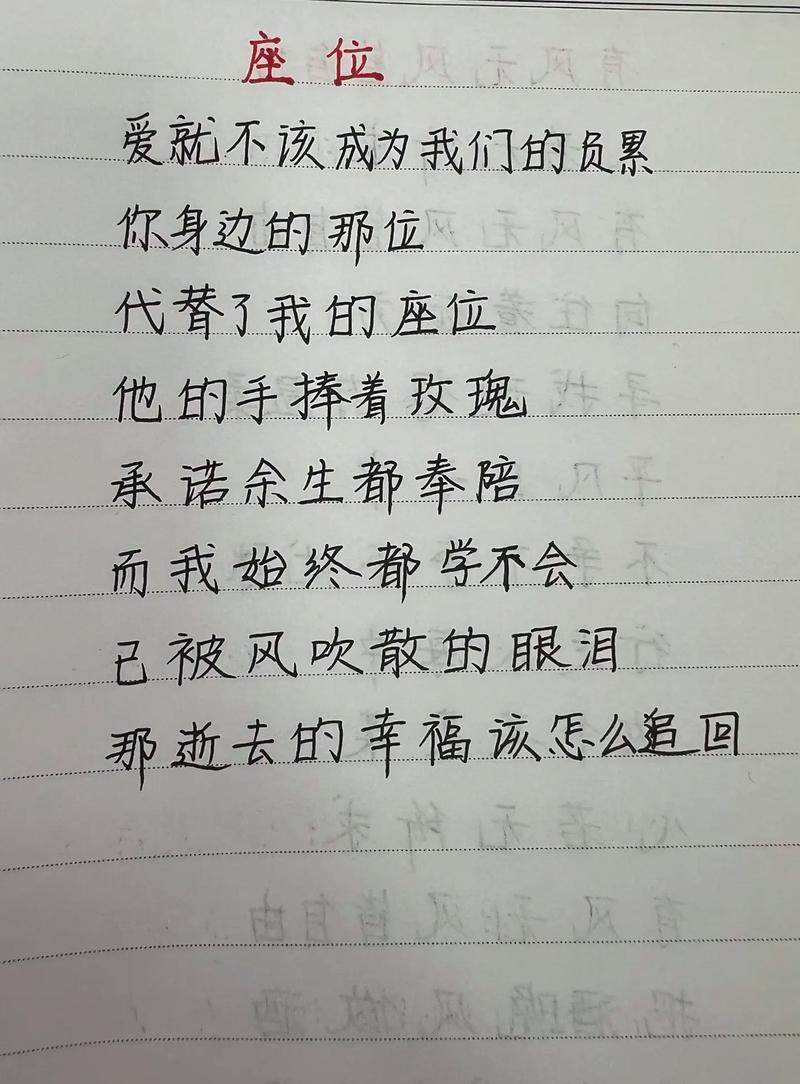 座位
爱就不该成为我们的负累
你身边的那位
代替了我的座位
他的手捧着玫瑰
承诺余生都奉陪
而我始终都学不会
已被风吹散的眼泪
那逝去的幸福该怎么追回